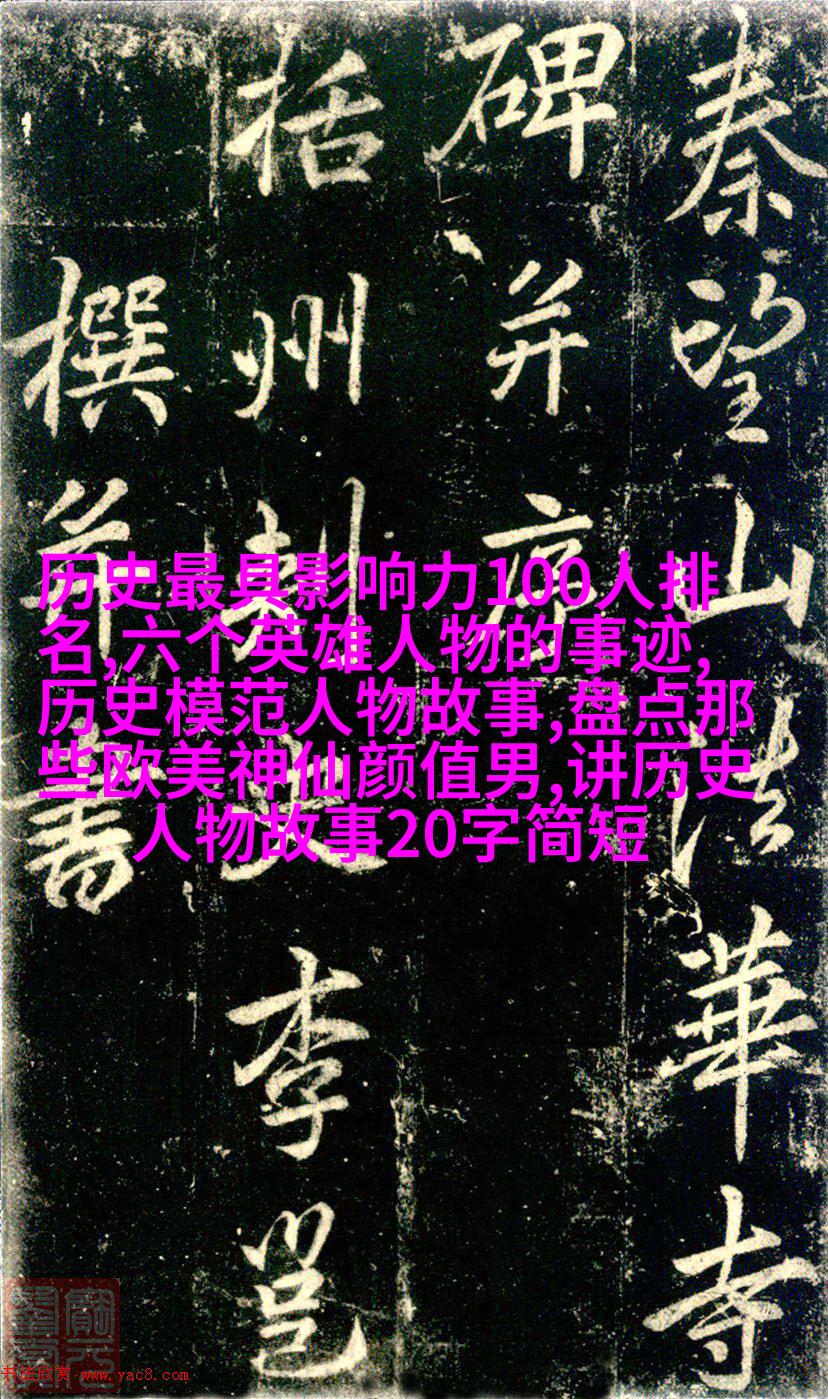 秦望山法華寺
碑并序
括州刺史李邕
撰并書
历史最具影响力100人排
名,六个英雄人物的事迹,
历史模范人物故事,盘点那
些欧美神仙颜值男,讲历史
人物故事20字简短
书法欣赏 www.yac8.com